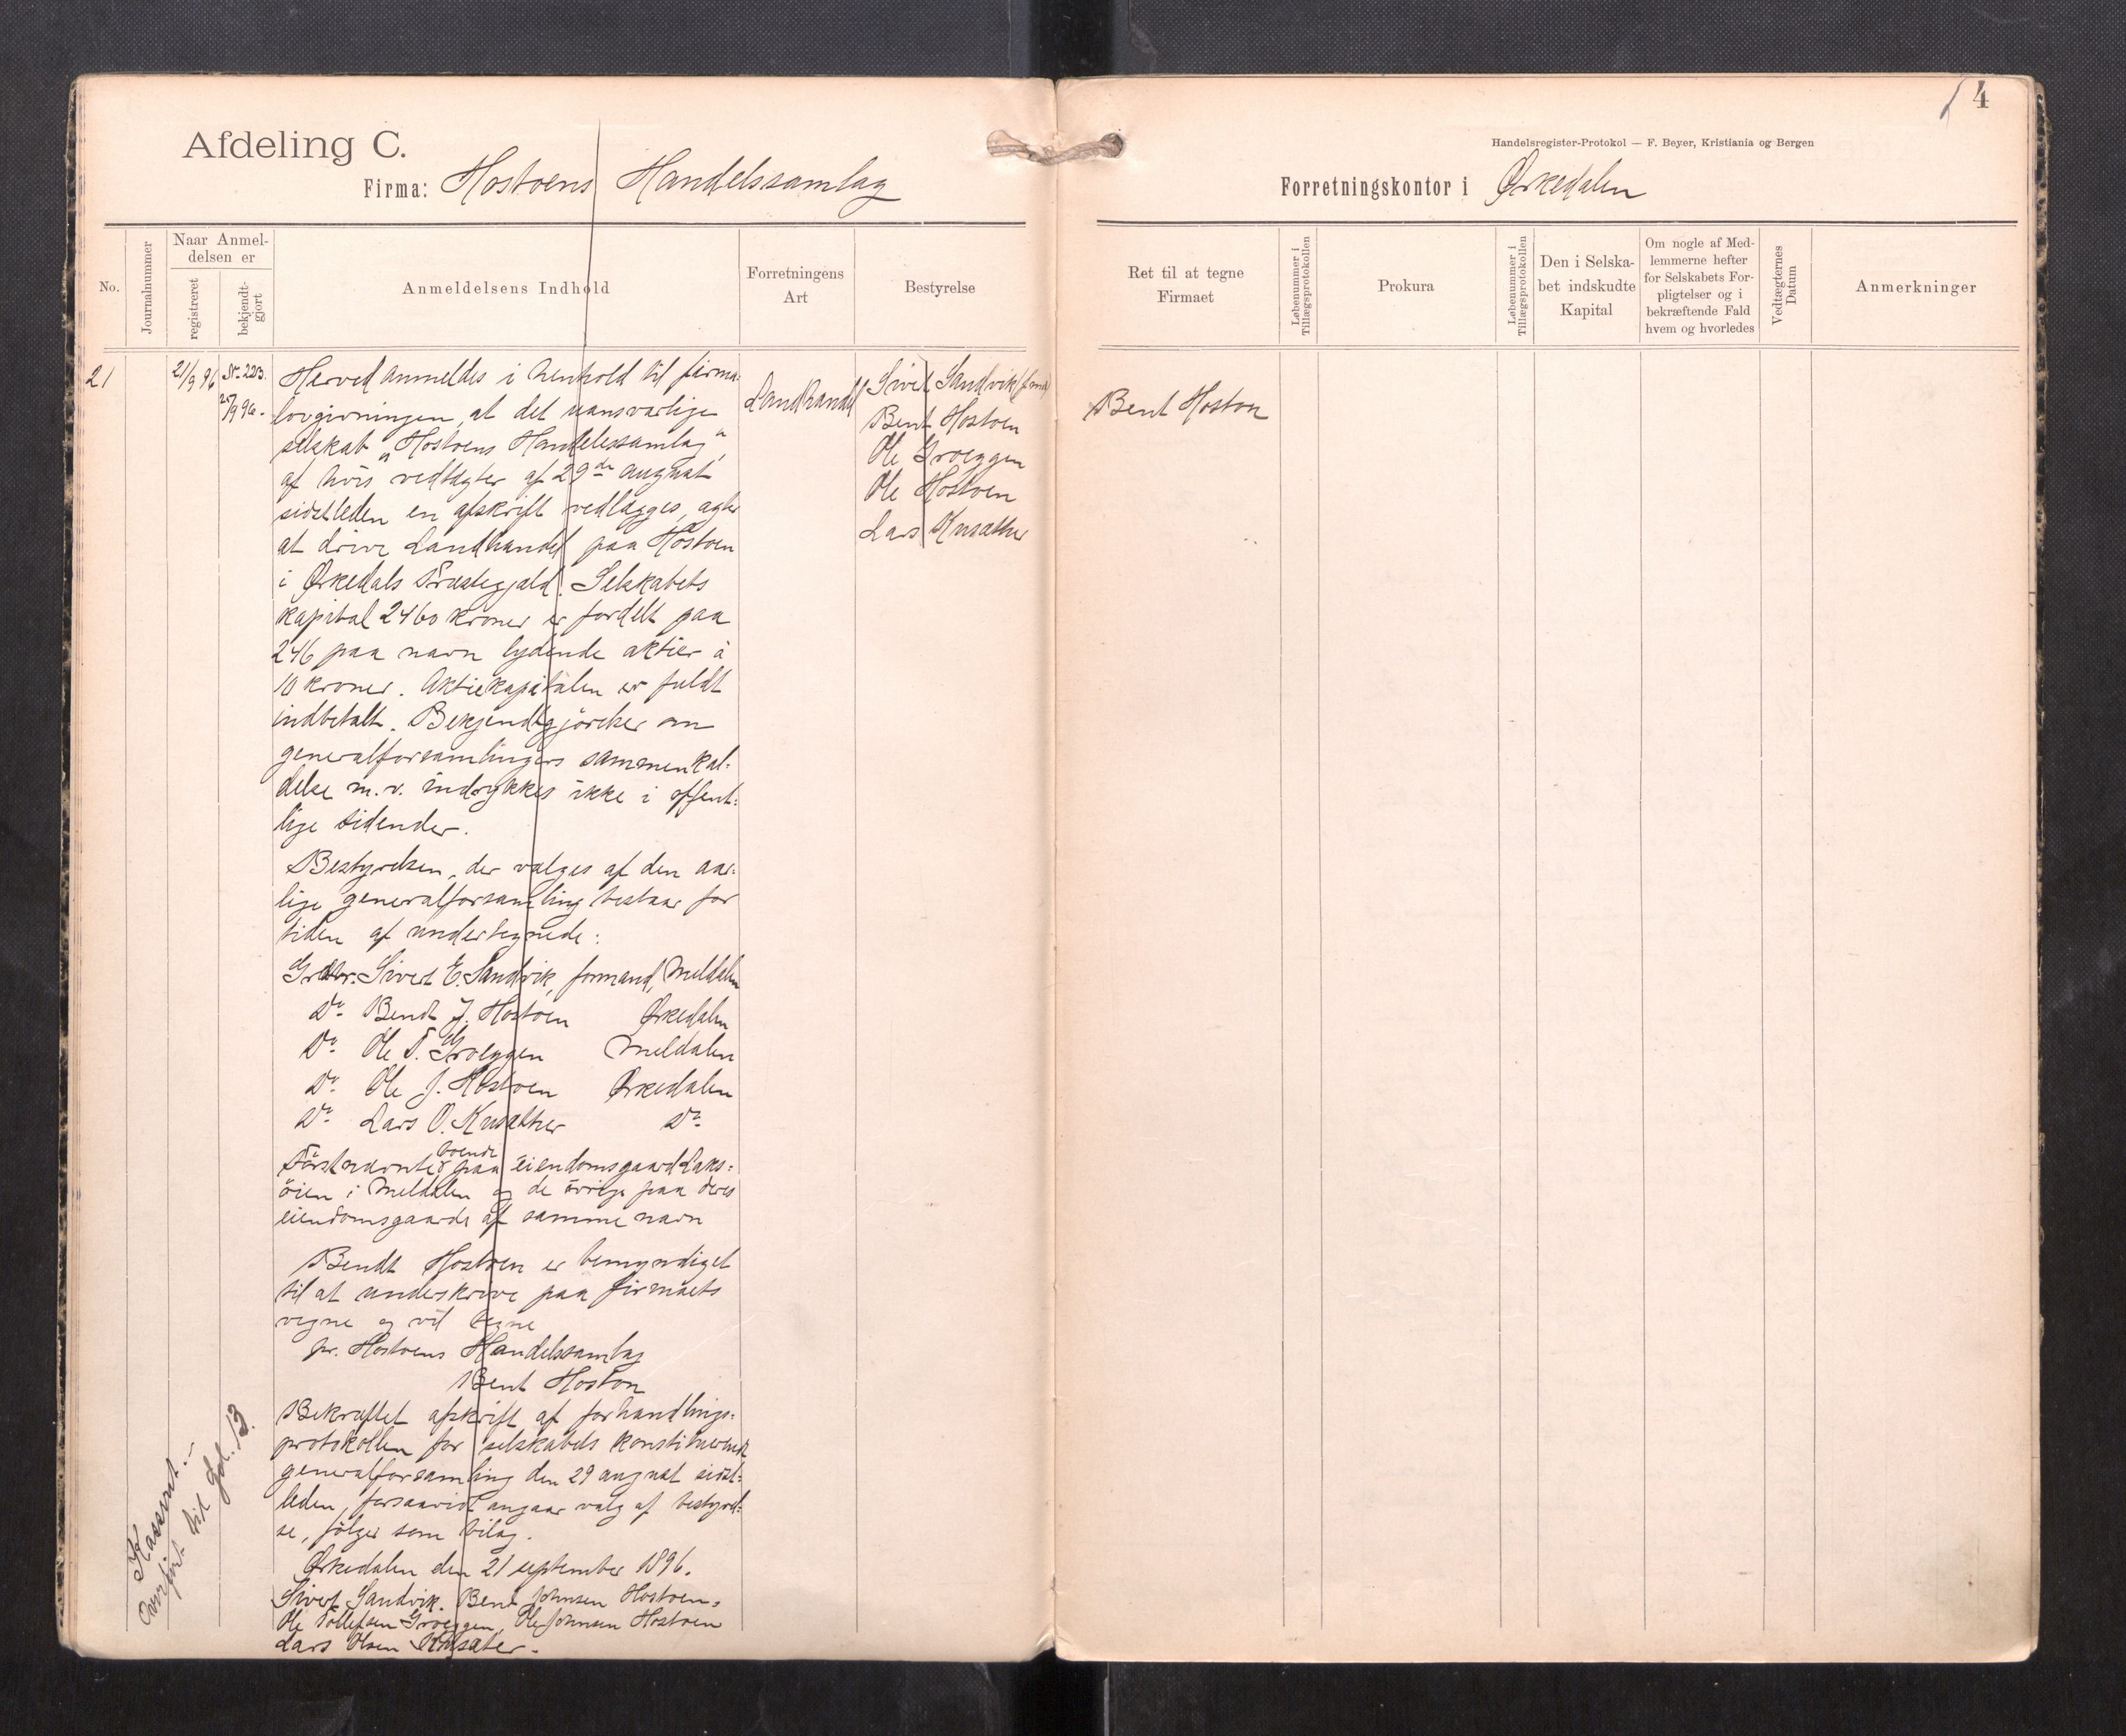 4
Afdeling C.
Handelsregister-Protokol — F. Beyer, Kristiania og Bergen
Firma: Hostoens Handelssamlag
Forretningskontor i Ørkedalen
No.
Journalnummer
Naar Anmel-
delsen er
registreret
bekjendt-
gjort
Anmeldelsens Indhold
Forretningens
Art
Bestyrelse
Ret til at tegne
Firmaet
Løbenummer i
Tillægsprotokollen
Prokura
Løbenummer i
Tillægsprotokollen
Den i Selska-
bet indskudte
Kapital
Om nogle af Med-
lemmerne hefter
for Selskabets For-
pligtelser og i
bekræftende Fald
hvem og hvorledes
Vedtægternes
Datum
Anmerkninger
21
21/9 96
Nr. 223.
25/9 96.
Herved anmeldes i henhold til firma-
lovgivningen, at det uansvarlige
selskab "Hostoens Handelssamlag",
af hvis vedtægter af 29de august
sidstleden en afskrift vedlægges, agter
at drive Landhandel paa Hostoen
i Ørkedals Præstegjæld. Selskabets
kapital 2460 kroner er fordelt paa
246 paa navn lydende aktier à
10 kroner. Aktiekapitalen er fuldt
indbetalt. Bekjendtgjörelser om
generalforsamlingers sammenkal-
delse m.v. indrykkes ikke i offent-
lige tidender.
Bestyrelsen, der vælges af den aar-
lige generalforsamling bestaar for
tiden af undertegnede:
Grdbr. Sivert E. Sandvik, formand, Meldalen
Do. Bendt J. Hostoen Ørkedalen
Do. Ole T. Groeggen Meldalen
Do. Ole J. Hostoen Ørkedalen
Do. Lars O. Knsæther Do.
Förstnævnte boende paa eiendomsgaard Laks-
öien i Meldalen og de övrige paa deres
eiendomsgaarde af samme navn
Bendt Hostoen er bemyndiget
til at underskrive paa firmaets
vegne og vil tegne
pr. Hostoens Handelssamlag
Bent Hoston
Bekræftet afskrift af forhandlings-
protokollen for selskabets konstituerende
generalforsamling den 29 august sidst-
leden, forsaavidt angaar valg af bestyrel-
se, fölger som bilag.
Ørkedalen den 21 september 1896.
Sivert Sandvik. Bent Johnsen Hostoen.
Ole Tollefsen Groeggen, Ole Johnsen Hostoen
Lars Olsen Knsæter.
Landhandel
Sivert Sandvik (fmd)
Bent Hostoen
Ole Groeggen
Ole Hostoen
Lars Knsæther
Bent Hoston
Kasseret.
Overført til Fol. 13.